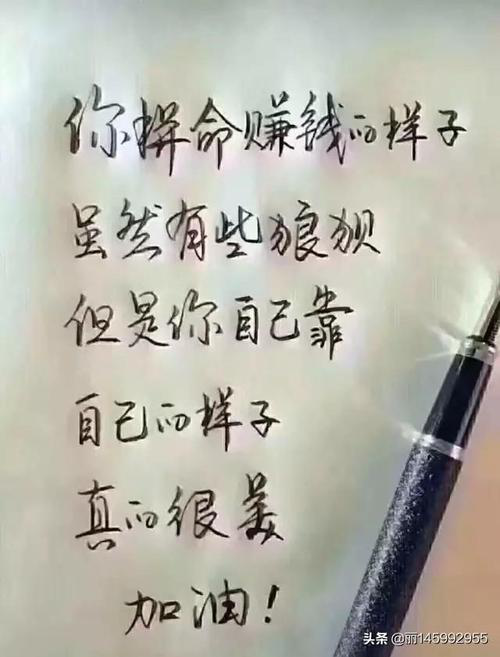 你拼命赚钱的样子
虽然有些狼狈
但是你自己靠
自己的样子
真的很美
加油!
头条 @丽145992955